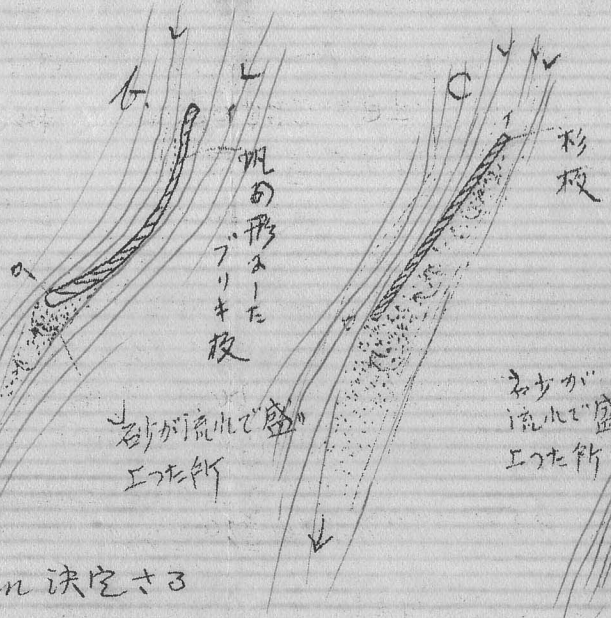 b.
帆の形にした
ブリキ板
a
砂が流れで盛
上つた所
C
杉
板
砂が
流れで盛
上つた所
れ決定さる